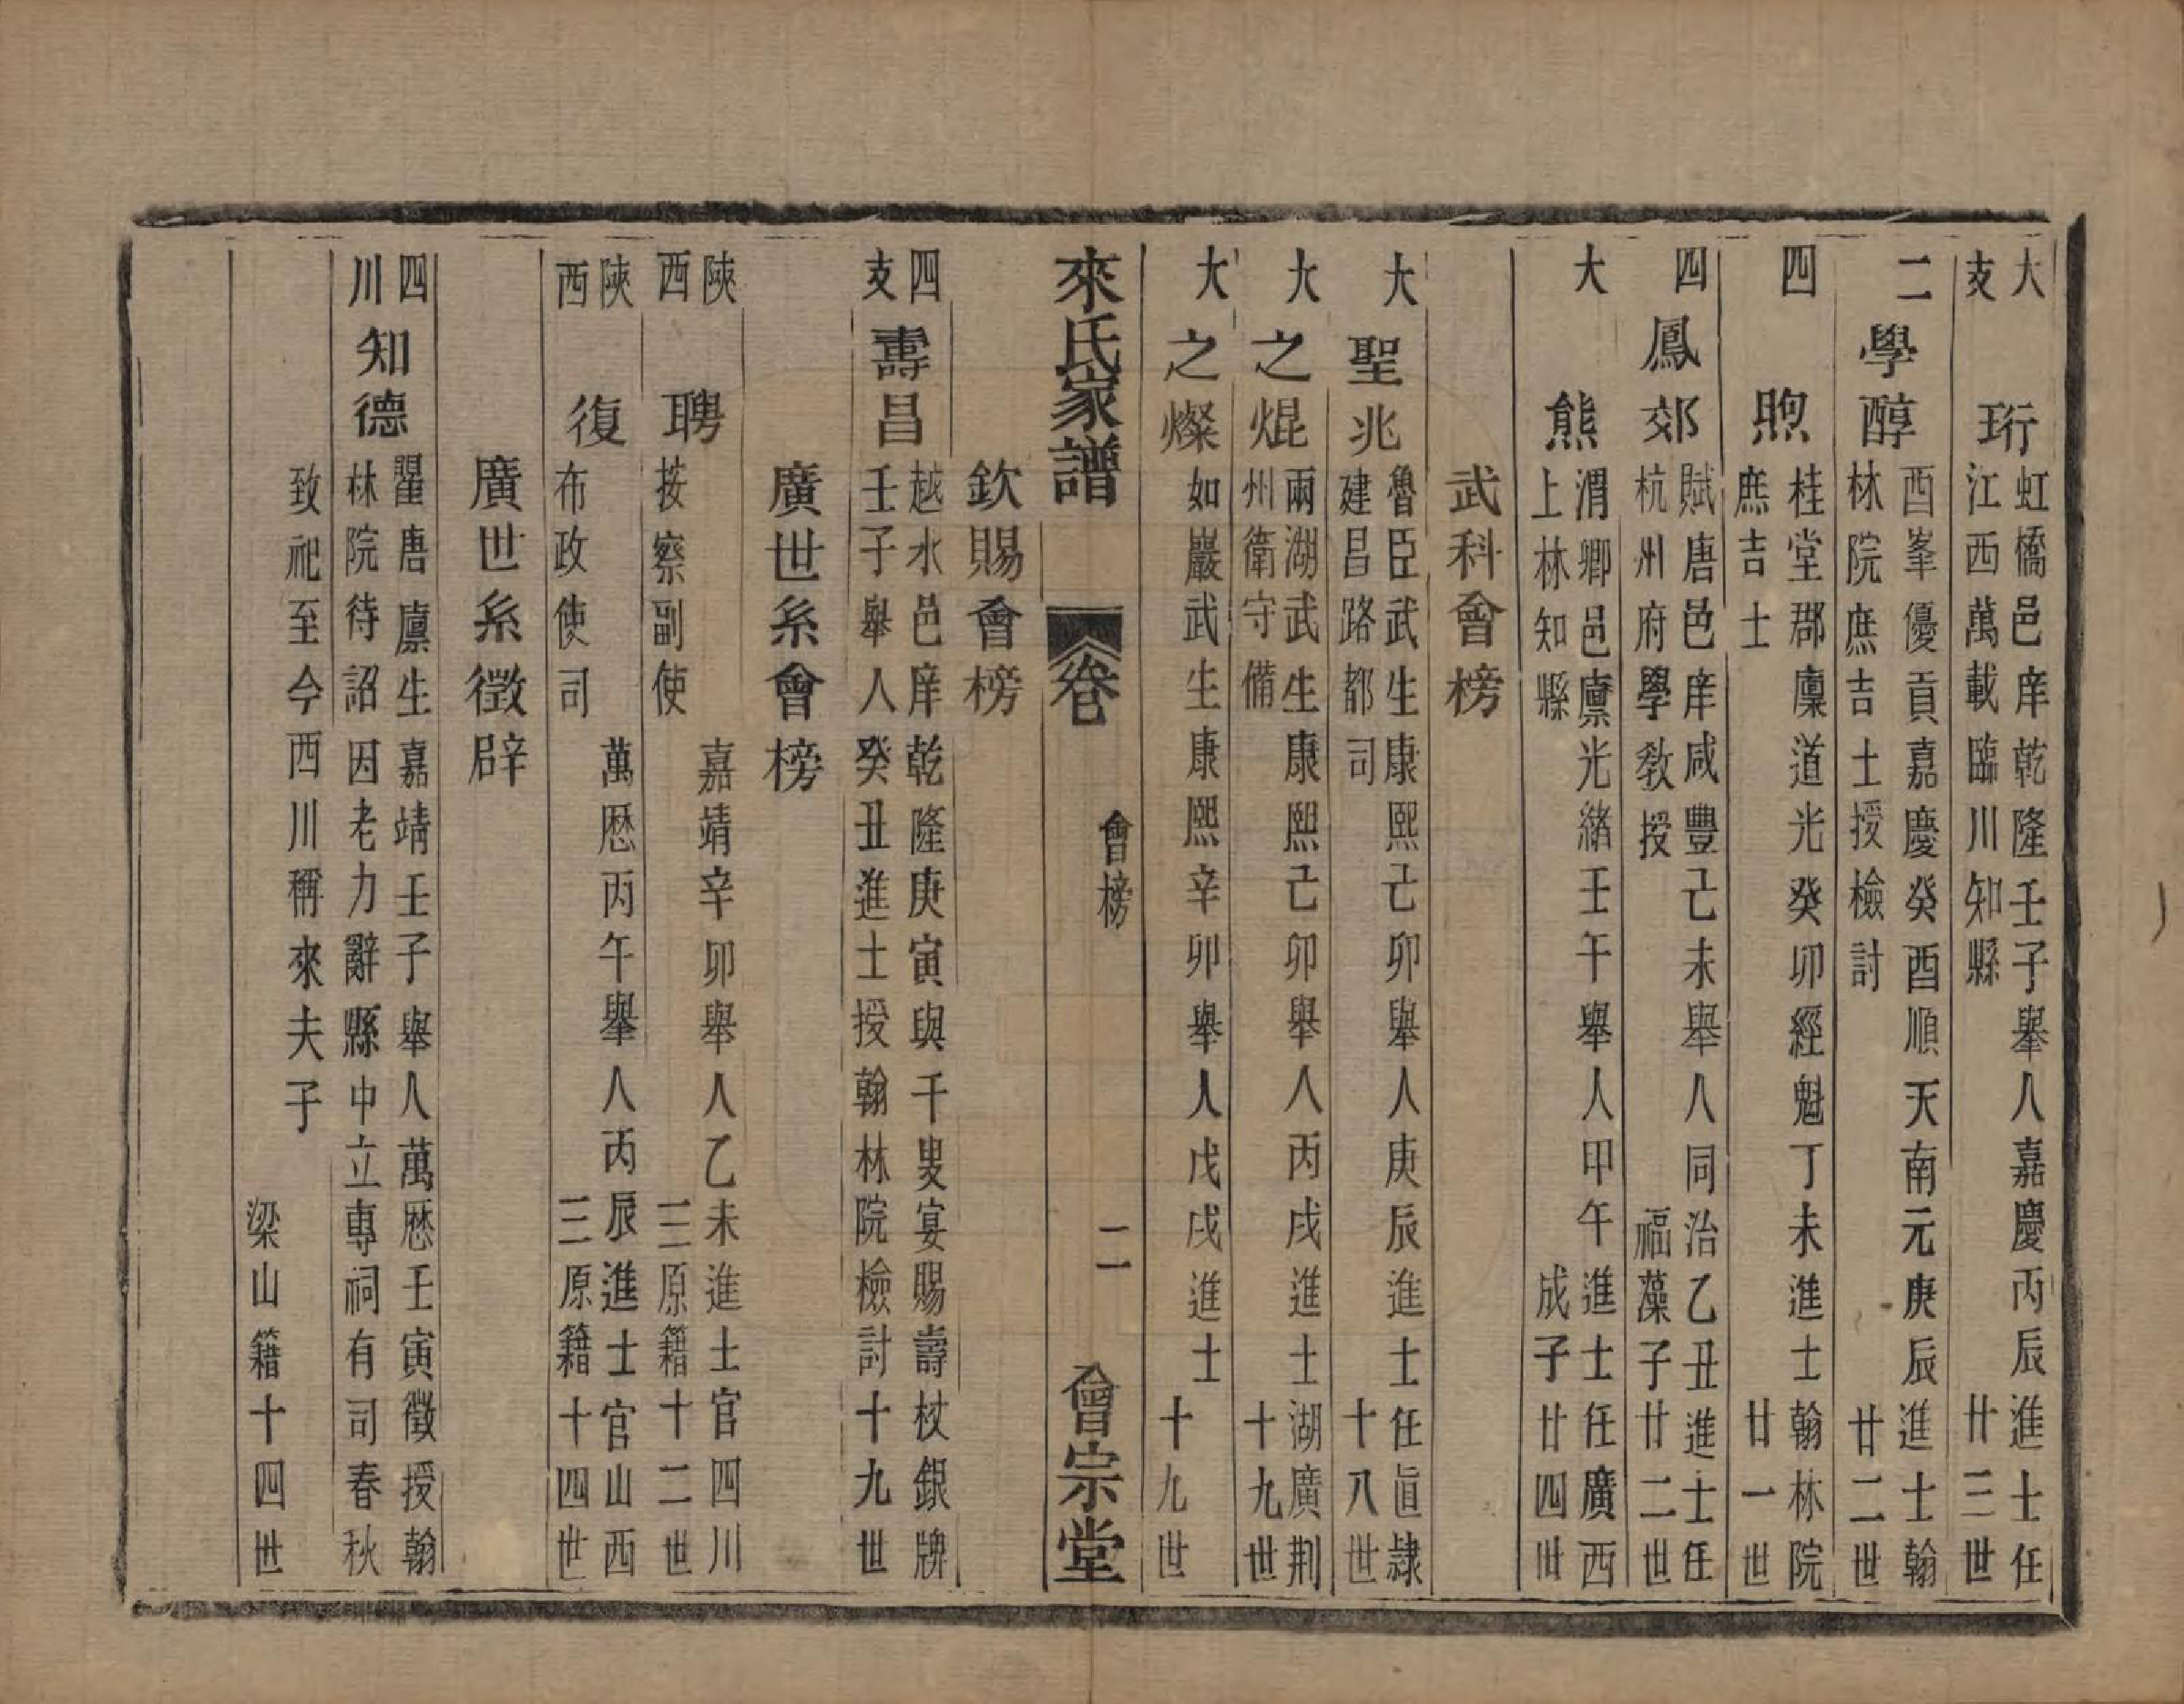 大支 珩 虹橋邑庠乾隆壬子舉人嘉慶丙辰進士任
江西萬載臨川知縣 廿三世
二 學醇 酉峯優貢嘉慶癸酉順天南元庚辰進士翰
林院庶吉士授檢討 廿二世
四 煦 桂堂郡廩道光癸卯經魁丁未進士翰林院
庶吉士 廿一世
四 鳳郊 賦唐邑庠咸豐己未舉人同治乙丑進士任
杭州府學教授 福藻子廿二世
大 熊 渭卿邑廩光緒壬午舉人甲午進士任廣西
上林知縣 成子廿四世
武科會榜
大 聖兆 魯臣武生康熙己卯舉人庚辰進士任直隸
建昌路都司 十八世
大 之焜 兩湖武生康熙己卯舉人丙戌進士湖廣荆
州衛守備 十九世
大 之燦 如巖武生康熙辛卯舉人戊戌進士
十九世
來氏家譜 卷 會榜 二 會宗堂
欽賜會榜
四支 壽昌 越水邑庠乾隆庚寅與千叟宴賜壽杖銀牌
壬子舉人癸丑進士授翰林院檢討十九世
廣世系會榜
陝西 聘 嘉靖辛卯舉人乙未進士官四川
按察副使 三原籍十二世
陝西 復 萬厯丙午舉人丙辰進士官山西
布政使司 三原籍十四世
廣世系徵辟
四川 知德 瞿唐廩生嘉靖壬子舉人萬厯壬寅徵授翰
林院待詔因老力辭縣中立專祠有司春秋
致祀至今西川稱來夫子
梁山籍十四世